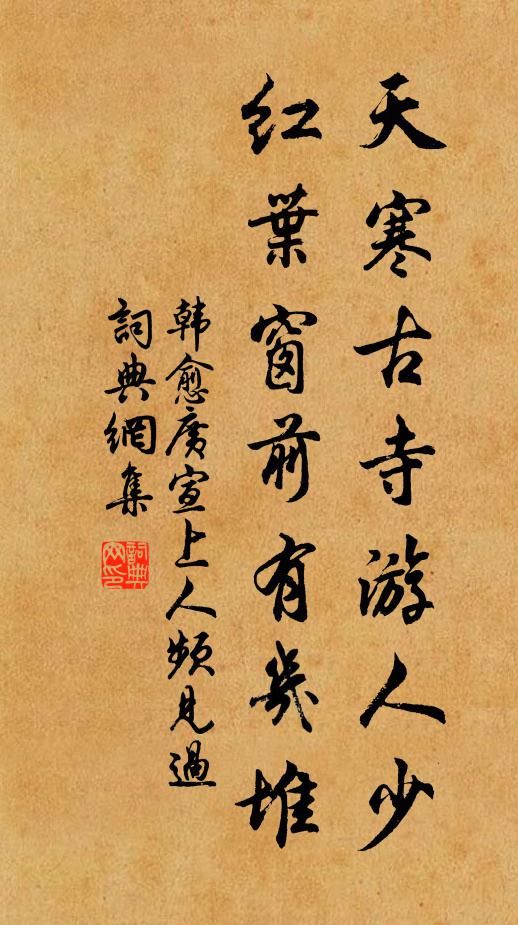 天寒古寺游人少
红葉窗前有幾堆
韩愈廣宣上人頻見過
詞典網集
詞典網印